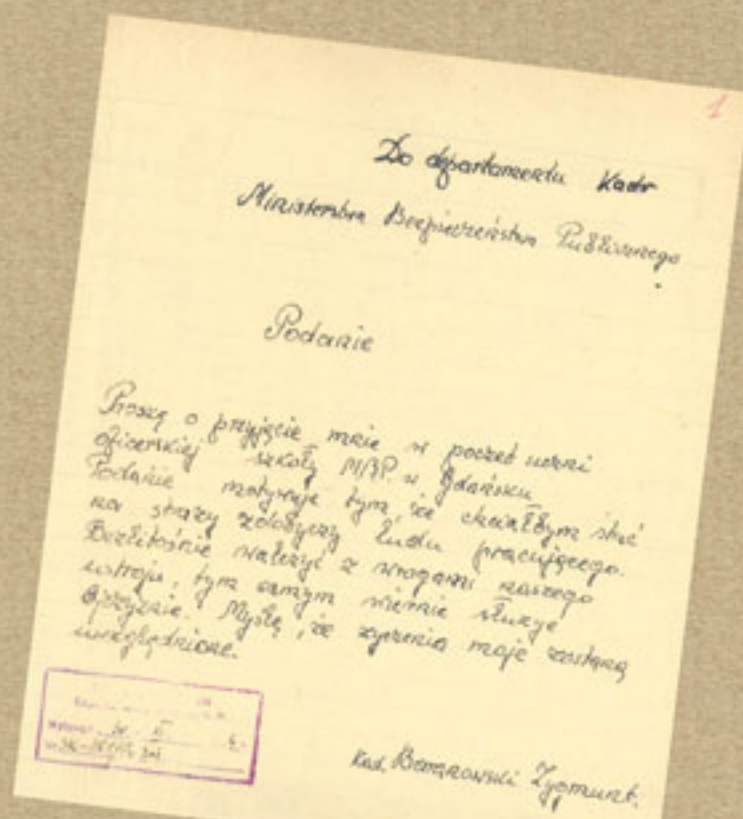 1
Do departamentu Kadr
Ministerstwa Bezpieczeństwa Publicznego
Podanie
Proszę o przyjęcie mnie w poczet uczni
oficerskiej szkoły MBP. w Gdańsku
Podanie motywuje tym, że chciałbym stać
na straży zdobyczy ludu pracującego.
Bezlitośnie walczyć z wrogami naszego
ustroju, tym samym wiernie służyć
Ojczyźnie. Myślę, że życzenia moje zostaną
uwzględnione.
Kad. Zygmunt.